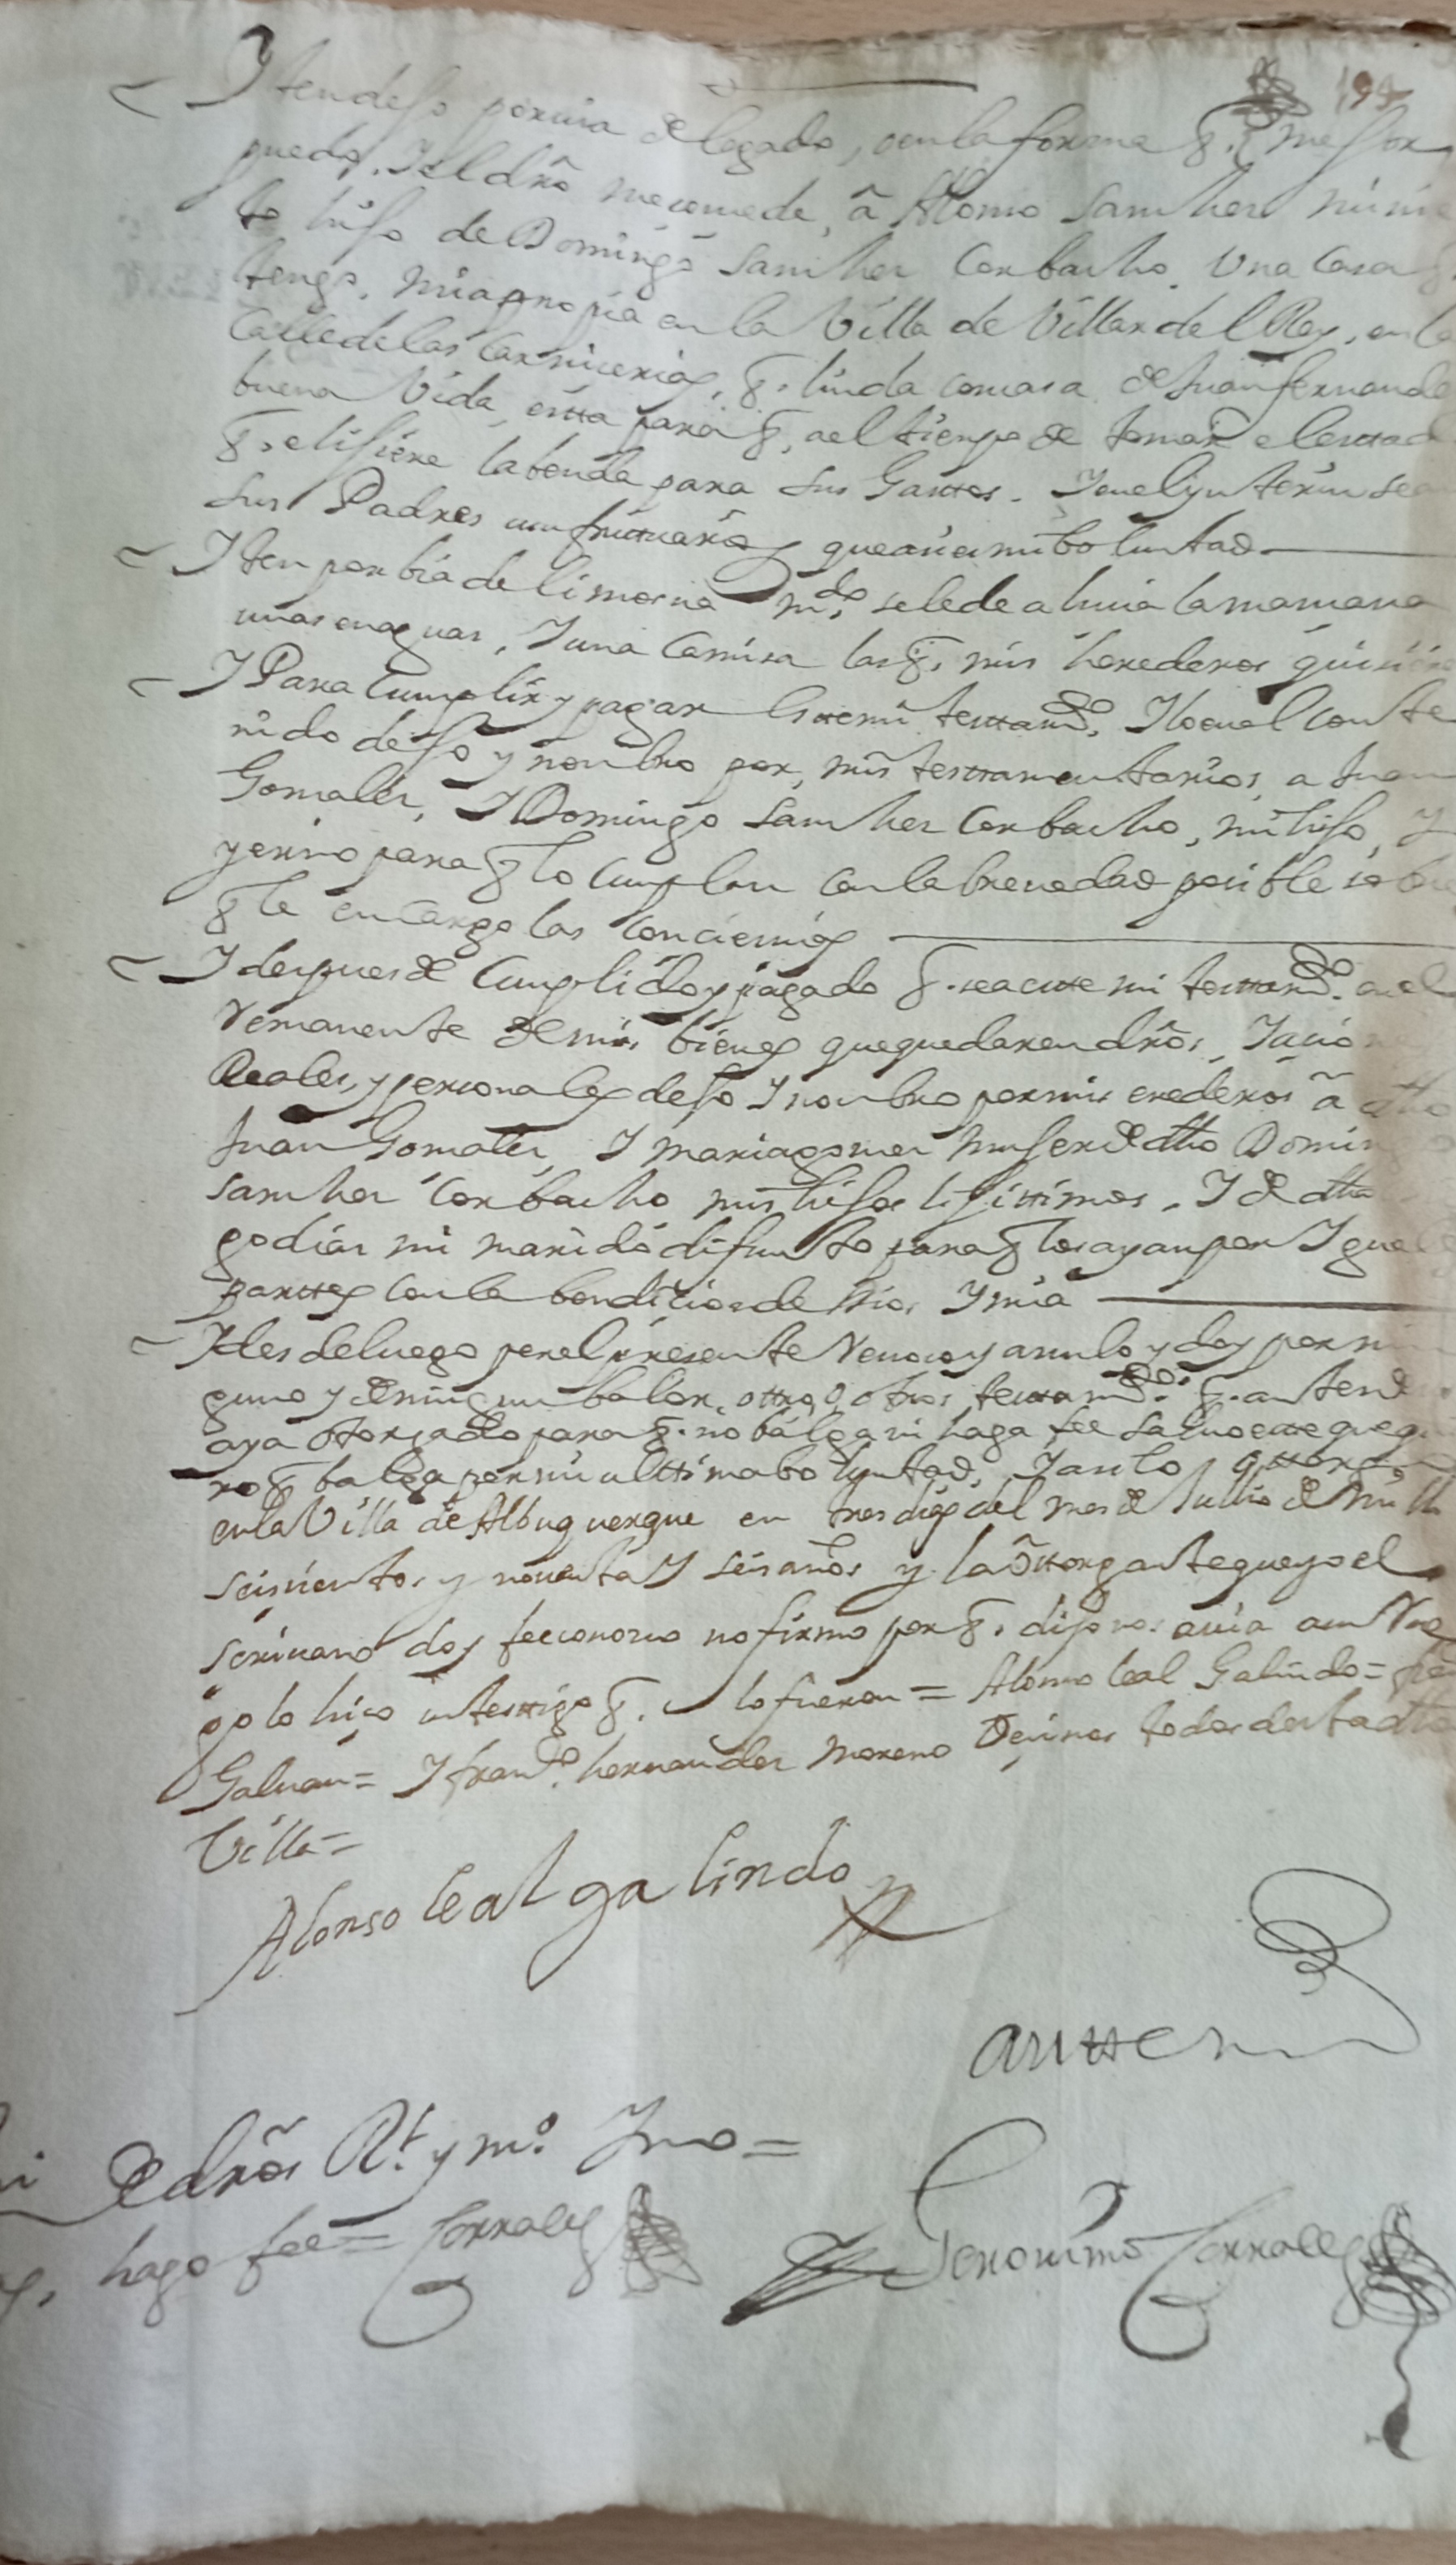 Iten deſo por via de legado, o en la forma q. mejor
puedo, Y el dro me consede, â Alonso Sanches mi nie
to hiſo de Domingo Sanches Corbacho. Una Casa q.
tengo. mia propia en la Villa de Villar del Rey, en la
Calle de las Carnicerias, q. linda con casa de Juan fernande
buena Vida, esta para q, a el tiempo de tomar el estad
q. elisiere la benda para sus Gastos. Y en el ynterin sea
sus Padres usufrutuarios que asi es mi boluntad
Iten por bia de limosna mdo se le de a luisa la mamara
unas enaguas, Y una Camisa las q. mis herederos quisiere
Y Para Cumplir y pagar este mi testamdo, Y lo en el conte
nido deſo y nonbro por, mis testamentarios, a Juan
Gonsales, Y Domingo Sanches Corbacho, mi hiſo, Y
yerno para q lo Cumplan con la brevedad posible sobre
q le encargo las Conciencias
Y despues de Cumplido y pagado q. sea este mi testamdo. en el
Remanente de mis bienes que quedaren dros, Y acio
Reales, y personales deſo Y nonbro por mis erederos â dho
Juan Gonsales, Y maria gomes Muſer de dho Domingo
Sanches Corbacho mis hiſos lixitimos. Y de dho
go dias mi marido difunto para q los ayan por Iguales
partes con la bendicion de Dios Y mia
Y des de luego por el presente Revoco y anulo y doy por nin
guno y de ningun balor, otro, o otros testamdos. q. antes de
aya otorgado para q. no balga ni haga fee salvo este que qui
ro q balga por mi ultima boluntad, Y asi lo otorgo
en la Villa de Alburquerque en tres dias del mes de Jullio de mill
seiscientos y noventa Y seis años y la otorgante que yo el
scrivano doy fee conosco no firmo por q. dijo no savia a su Rue
go lo hiso un testigo q. lo fueron = Alonso leal Galindo =
Galvan = Y franco. hernandes moreno Vecinos todos de esta dha
Villa =
Alonso leal galindo
ante mi
De dros Rl. y mo. Yno =
hago fee = Corrales
Geronimo Corrales